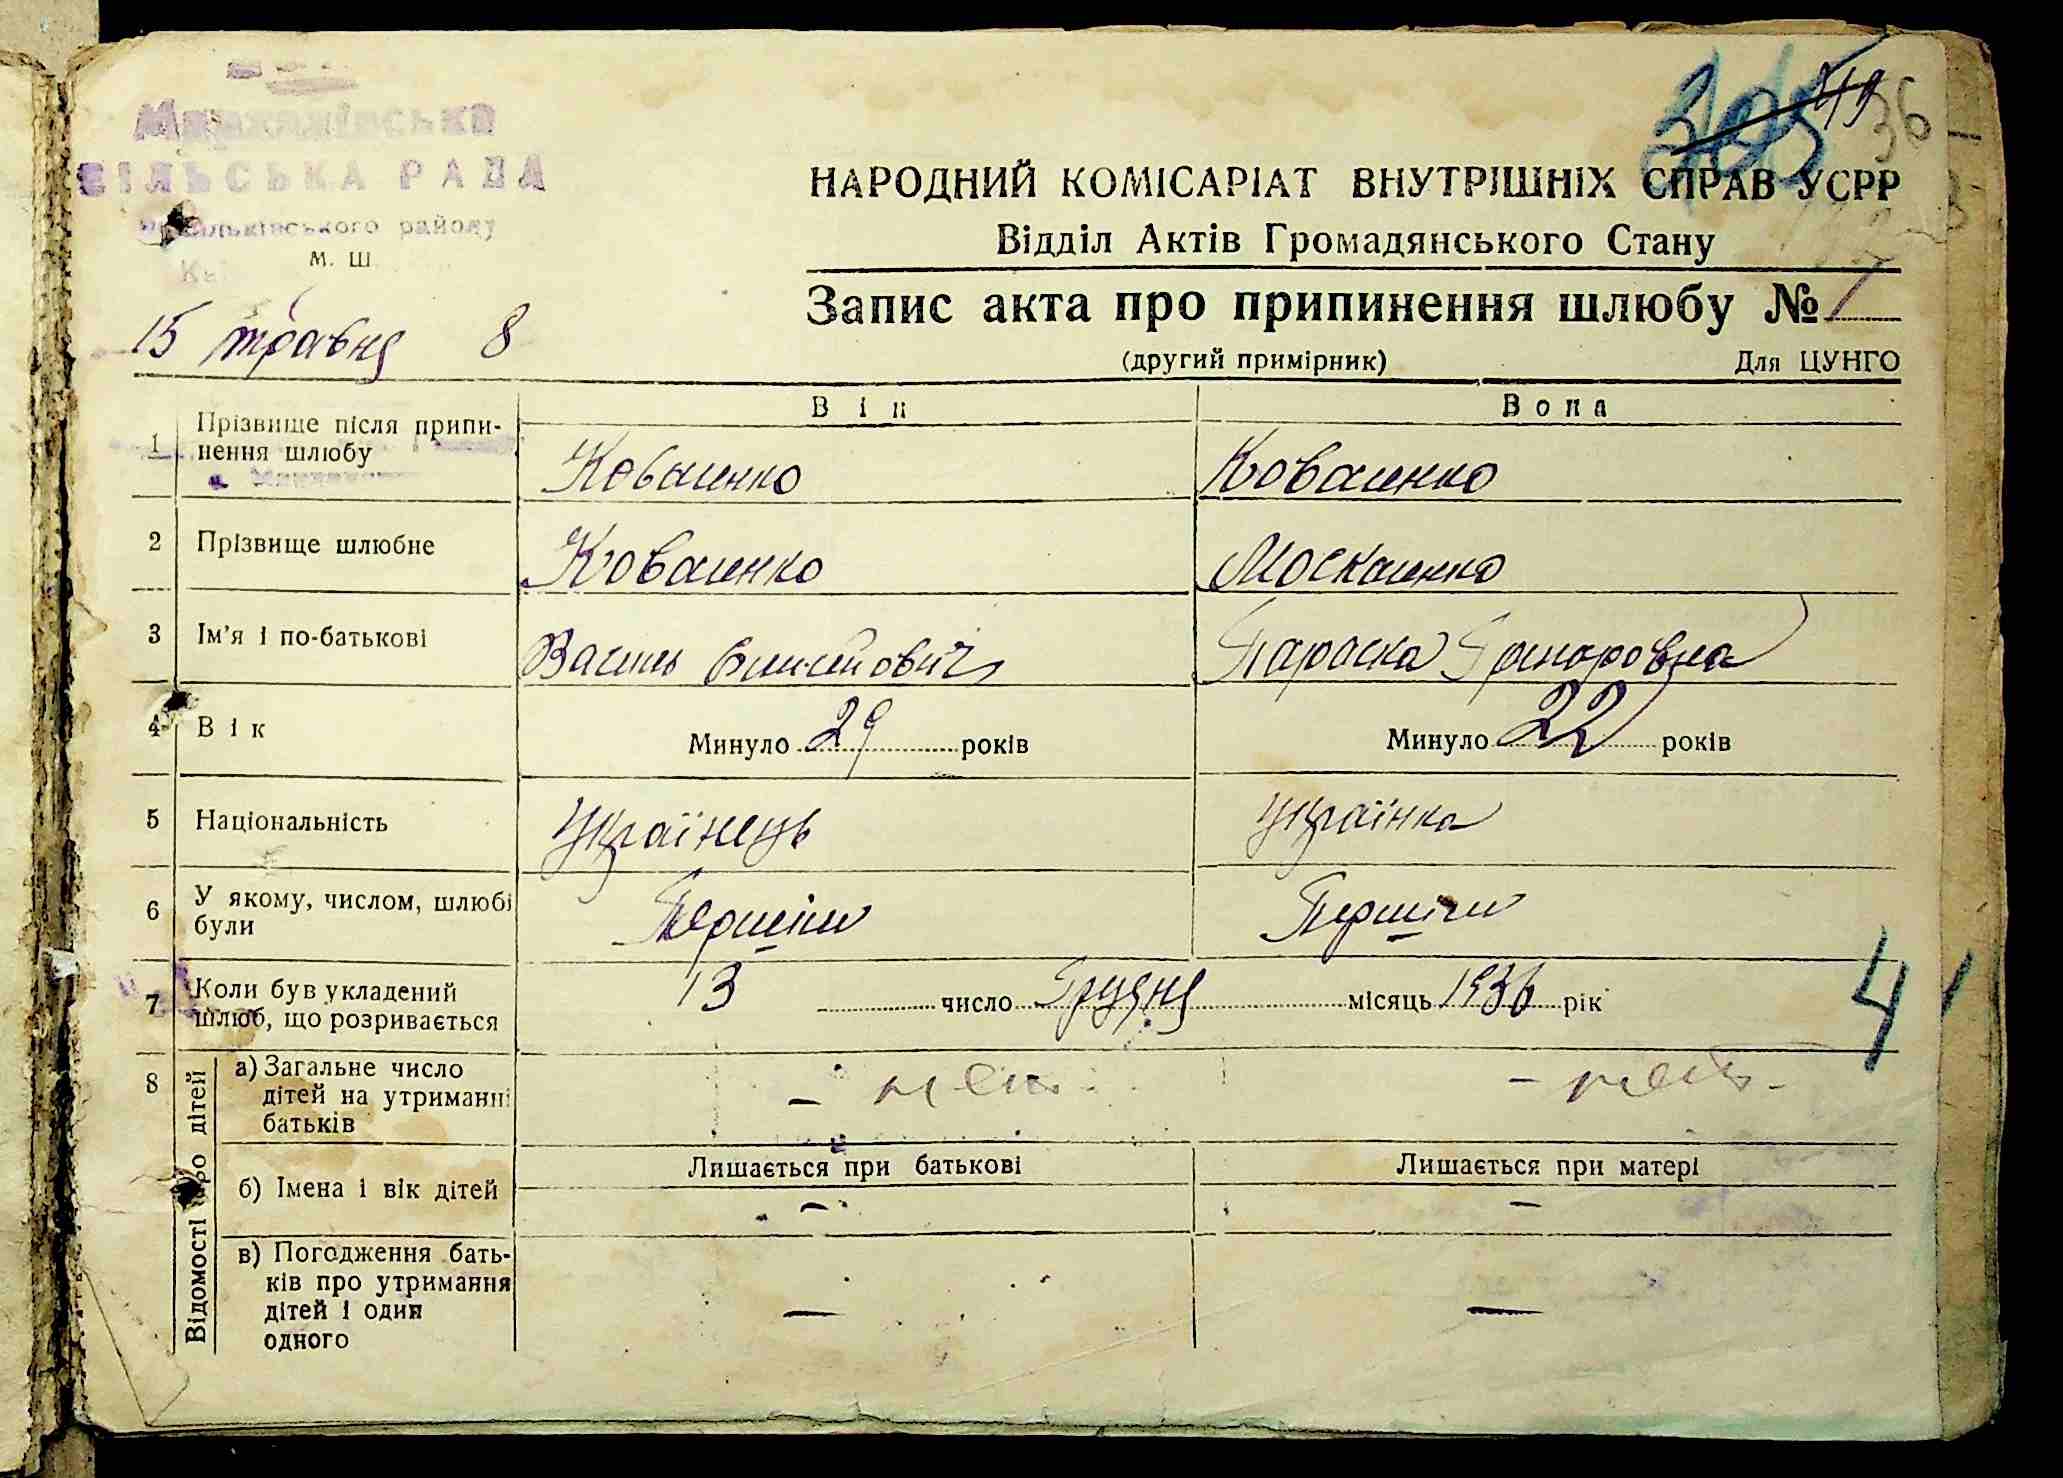 СІЛЬСЬКА РАДА
району
М. Ш.
15 травня 8
305 49 36
НАРОДНИЙ КОМІСАРІАТ ВНУТРІШНІХ СПРАВ УСРР
Відділ Актів Громадянського Стану
Запис акта про припинення шлюбу № 1
(другий примірник) Для ЦУНГО
Він Вона
1 Прізвище після припи-
нення шлюбу Коваленко Коваленко
2 Прізвище шлюбне Коваленко Москаленко
3 Ім'я і по-батькові Василь Параска Григоровна
4 Вік Минуло 29 років Минуло 22 років
5 Національність Українець Українка
6 У якому, числом, шлюбі
були Першім Першім
7 Коли був укладений
шлюб, що розривається 13 число Грудня місяць 1936 рік
41
8 Відомості про дітей
а) Загальне число
дітей на утриманні
батьків – нет – нет –
Лишається при батькові Лишається при матері
б) Імена і вік дітей – –
в) Погодження бать-
ків про утримання
дітей і один
одного – –